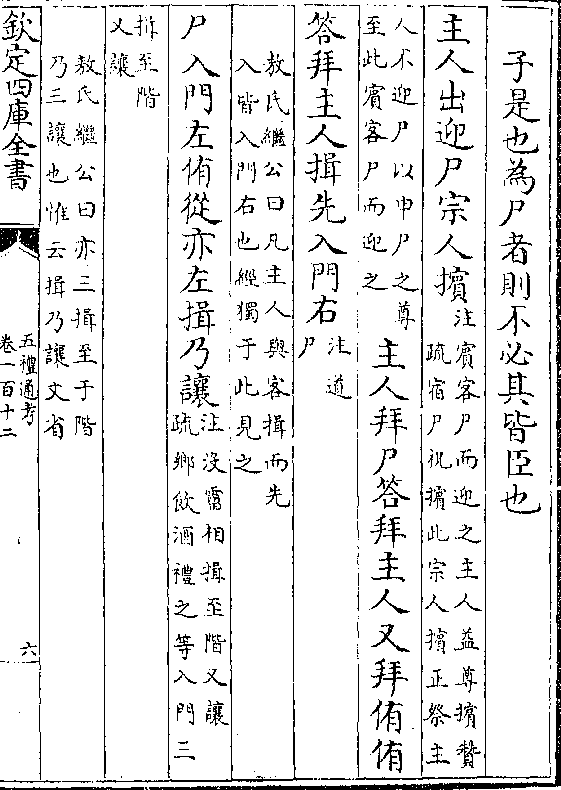 子是也為尸者則不必具皆臣也
主人出迎尸宗人擯注賓客尸而迎之主人益尊擯贊
疏宿尸祝擯此宗人擯正祭主
人不迎尸以申尸之尊
至此賓客尸而迎之
主人拜尸答拜主人又拜侑侑
答拜主人揖先入門右注道
尸
敖氏繼公曰凡主人與客揖而先
入皆入門右也經獨于此見之
尸入門左侑從亦左揖乃讓注沒霤相揖至階又讓
疏鄉飲酒禮之等入門三
揖至階
又讓
敖氏繼公曰亦三揖至于階
乃三讓也惟云揖乃讓文省
欽定四庫全書
五禮通考
卷一百十二
六